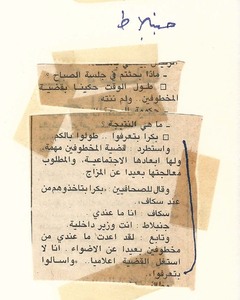 جنبلاط
- ماذا بحثتم في جلسة الصباح
□ طول الوقت حكينا بقضية
المخطوفين ولم ننته.
- ما هي النتيجة
□ بكرا بتعرفوا.. طولوا بالكم
واستطرد: قضية المخطوفين مهمة،
ولها ابعادها الاجتماعية، والمطلوب
معالجتها بعيدا عن المزاج.
وقال للصحافيين «بكرا بتاخذوهم من
عند سكاف».
سكاف: انا ما عندي.
جنبلاط: انت وزير داخلية.
وتابع: لقد اعدت ما عندي من
مخطوفين بعيدا عن الاضواء. انا لا
استغل القضية اعلاميا.. «واسالوا
بتعرفوا»